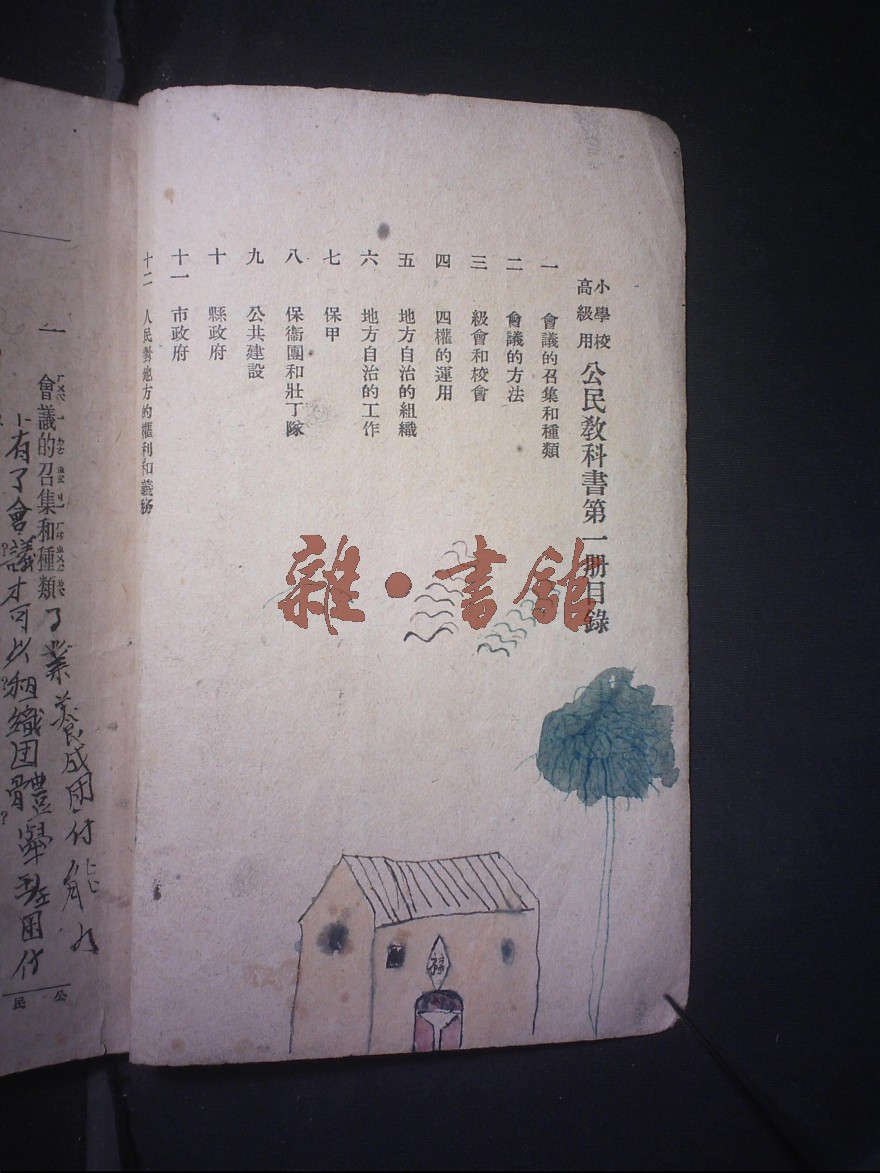 小學校
高級用
公民教科書第一册目錄
一 會議的召集和種類
二 會議的方法
三 級會和校會
四 四權的運用
五 地方自治的組織
六 地方自治的工作
七 保甲
八 保衞團和壯丁隊
九 公共建設
十 縣政府
十一 市政府
十二 人民對地方的權利和義務
雜·書館
福
一 會議的召集和種類
有了會議才可以組織团體
公民